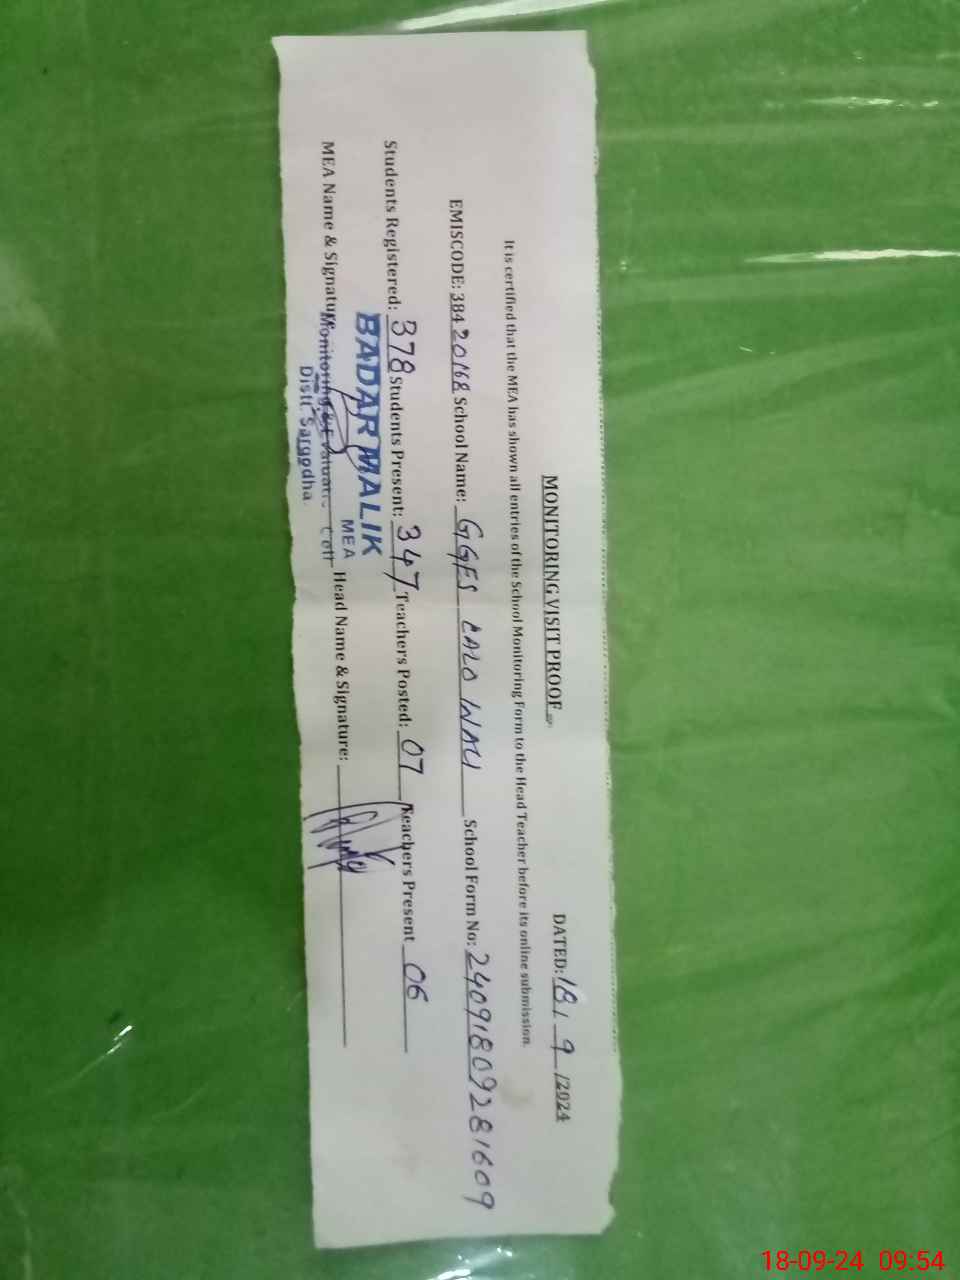 MONITORING VISIT PROOF
DATED: 18 / 9 /2024
It is certified that the MEA has shown all entries of the School Monitoring Form to the Head Teacher before its online submission.
EMISCODE: 384 20168 School Name: GGES CALO WALI School Form No: 24091809281609
Students Registered: 378 Students Present: 347 Teachers Posted: 07 Teachers Present 06
BADAR MALIK
MEA
MEA Name & Signature Head Name & Signature:
Monitoring & Evaluat.. Cell
Distt. Sargodha.
18-09-24 09:54